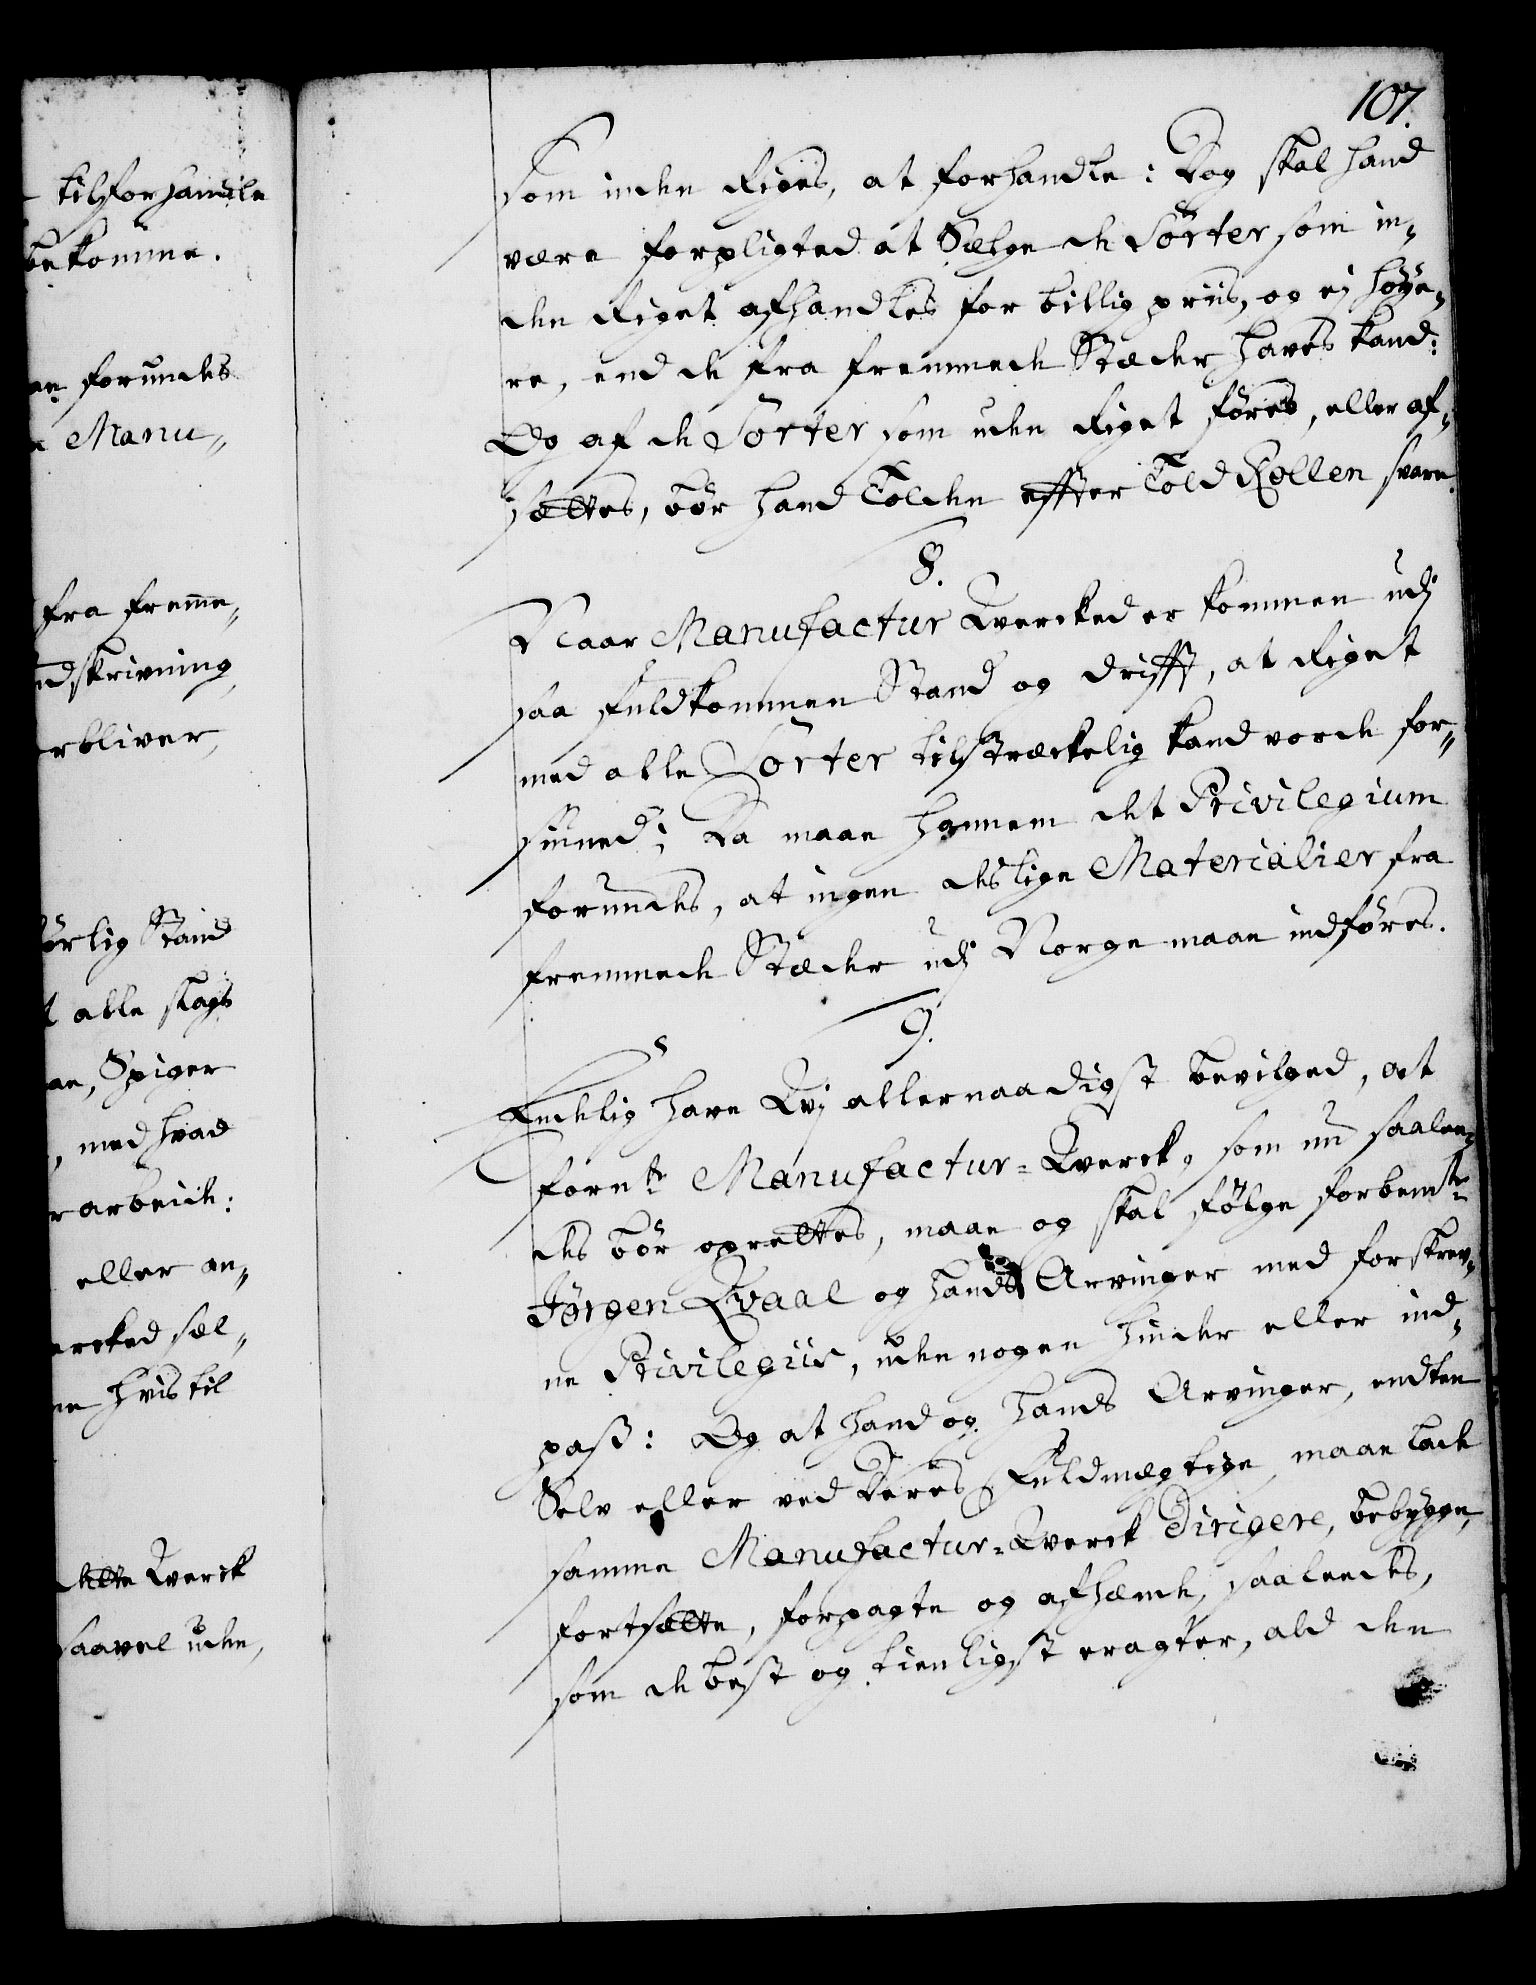 107.
tilforhandle
bekomme.
forundes
Manu„
fra freme„
ndskrivning
rbliver,
ørlig Stand
alle slags
Spiger
, med hvad
rarbeide:
eller an„
ercked sæl„
hvis til
dette Werck
saavel uden,
som inden Riges, at forhandle: Dog skal hand
være forpligted at Sælge de Sorter som in„
den Riget afhandles for billig priis, og ej høye„
re, end de fra fremmede Stæder haves kand:
Og af de Sorter som uden Riget føres, eller af„
sættes, bør hand Tolden effter Told Rollen svare.
8.
Naar Manufactur Wercked er kommen udj
saa fuldkommen Stand og drifft, at Riget
med alle Sorter tilstræckelig kand vorde for„
siuned; Da maae hannem det Privilegium
forundes, at ingen deslige Materialier fra
fremmede Stæder udj Norge maae indføres.
9.
Endelig have Wj allernaadigst bevilged, at
fornte Manufactur=Werck, som nu saalee„
des bør oprettes, maae og skal følge forbemte
Jørgen Qvaal og hands Arvinger med forskrev„
ne Privilegiis, uden nogen hinder eller ind„
pass: Og at hand og hands Arvinger, endten
Selv eller ved Deres Fuldmægtige, maae lade
samme Manufactur=Werck Dirigere, bebygge,
fortsætte, forpagte og afhænde, saaleedes,
som de best og tienligst eragter, ald den